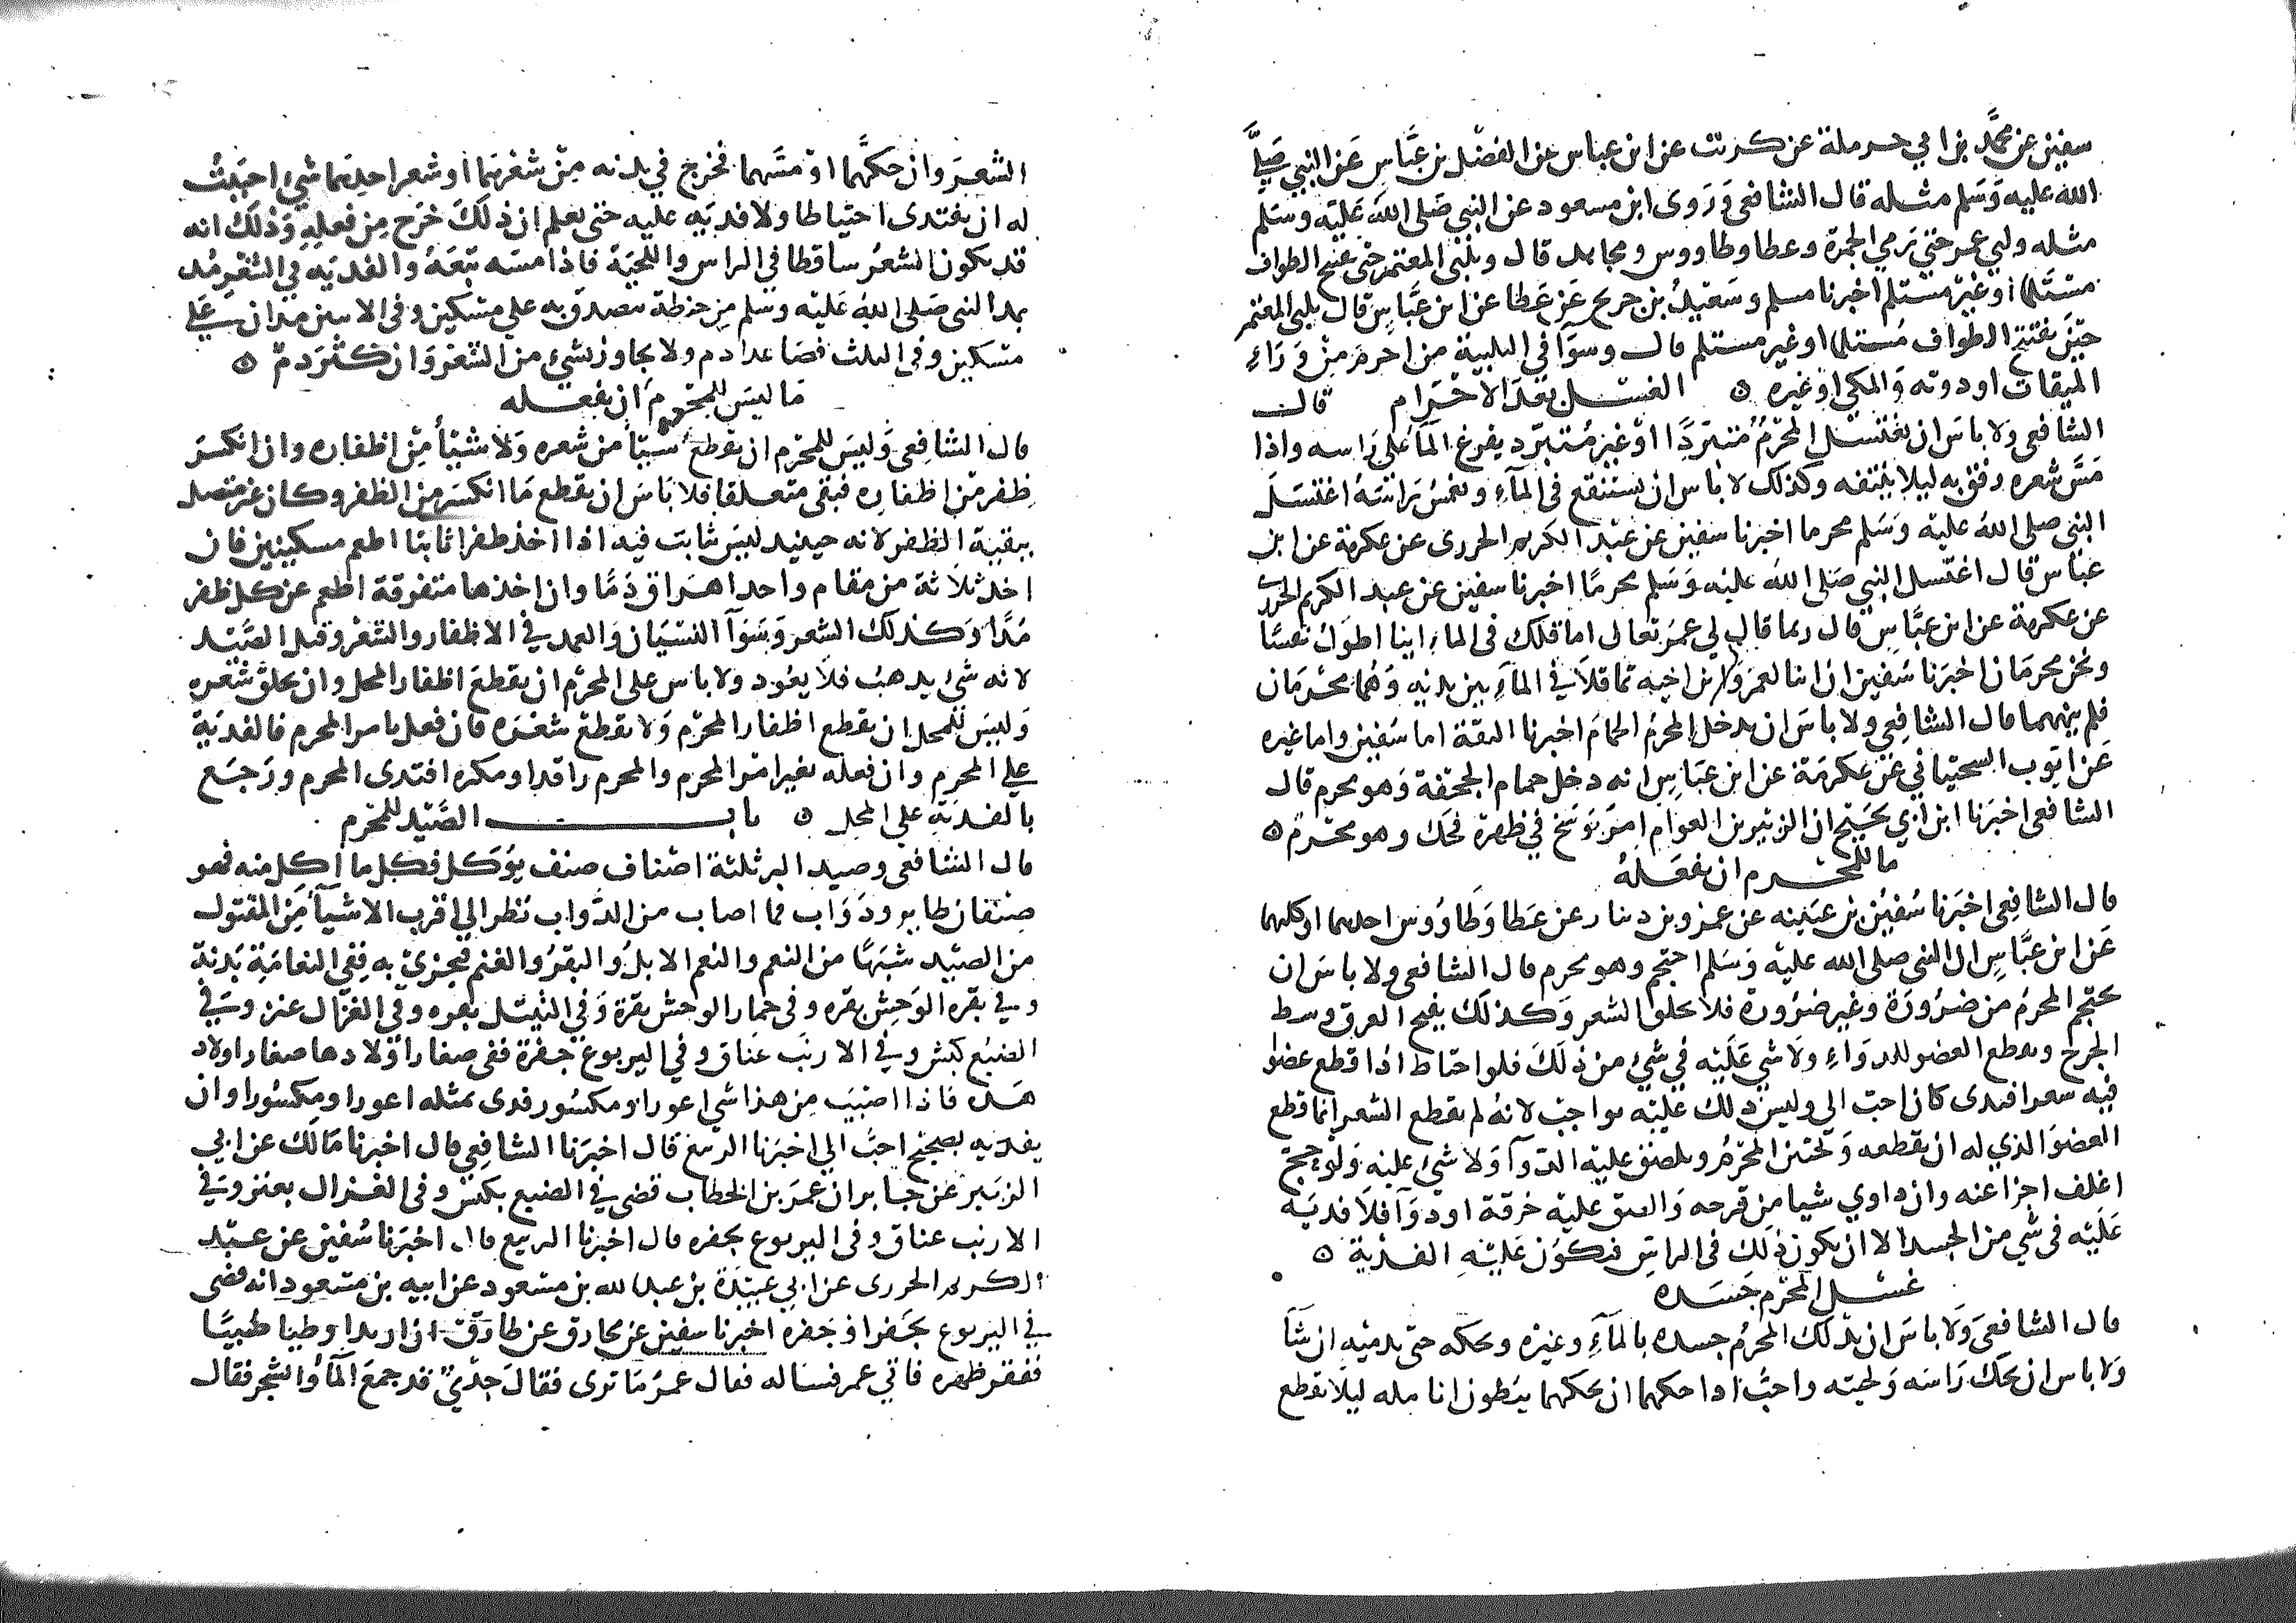 سفين عن محمد بن ابي حرملة عن كريب عن ابن عباس عن الفضل بن عباس عن النبي صلى
الله عليه وسلم مثله قال الشافعي وروى ابن مسعود عن النبي صلى الله عليه وسلم
مثله ولبى عمر حتى رمي الجمرة وعطا وطاووس ومجاهد قال ويلبي المعتمر حتى يفتتح الطواف
مستلما او غير مستلم اخبرنا مسلم وسعيد بن جريج عن عطا عن ابن عباس قال يلبي المعتمر
حين يفتتح الطواف مستلما او غير مستلم قال وسوآ في التلبية من احرم من ورآء
الميقات او دونه والمكي او غيره ه الغسل بعد الاحرام قال
الشافعي ولا باس ان يغتسل المحرم متبردا او غير متبرد يفرغ المآ على راسه واذا
مس شعره رفق به ليلا ينتفه وكذلك لا باس ان يستنقع في المآء ويغمس راسه اغتسل
النبي صلى الله عليه وسلم محرما اخبرنا سفين عن عبد الكريم الجزري عن عكرمة عن ابن
عباس قال اغتسل النبي صلى الله عليه وسلم محرما اخبرنا سفين عن عبد الكريم الجزري
عن عكرمة عن ابن عباس قال ربما قال لي عمر تعال اماقلك في الماء اينا اطول نفسا
ونحن محرمان اخبرنا سفين ان ابنا لعمر وابن اخيه تماقلا في المآء بين يديه وهما محرمان
فلم ينههما قال الشافعي ولا باس ان يدخل المحرم الحمام اخبرنا الثقة اما سفين واما غيره
عن ايوب السختياني عن عكرمة عن ابن عباس انه دخل حمام الجحفة وهو محرم قال
الشافعي اخبرنا ابن ابي نجيح ان الزبير بن العوام امر بوسخ في ظهره فحك وهو محرم ه
ما للمحرم ان يفعله
قال الشافعي اخبرنا سفين بن عيينه عن عمرو بن دينار عن عطا وطاووس احدهما او كلهما
عن ابن عباس ان النبي صلى الله عليه وسلم احتجم وهو محرم قال الشافعي ولا باس ان
يحتجم المحرم من ضرورة وغير ضرورة فلا يحلق الشعر وكذلك يفتح العرق ويبط
الجرح ويقطع العضو للدوآء ولا شي عليه في شي من ذلك فلو احتاط اذا قطع عضوا
فيه شعر افتدى كان احب الي وليس ذلك عليه بواجب لانه لم يقطع الشعر انما قطع
العضو الذي له ان يقطعه ويختتن المحرم ويلصق عليه الدوآ ولا شي عليه ولو حج
اغلف اجزا عنه وان داوي شيا من قرحه والصق عليه خرقة او دوآ فلا فديه
عليه في شي من الجسد الا ان يكون ذلك في الراس فتكون عليه الفدية ه
غسل المحرم جسده
قال الشافعي ولا باس ان يدلك المحرم جسده بالمآء وغيره ويحكه حتى يدميه ان شآ
ولا باس ان يحك راسه ولحيته واحب اذا حكهما ان يحكهما ببطون انامله ليلا يقطع
الشعر وان حكهما او مسهما فخرج في يديه من شعرهما او شعر احدهما شي احببت
له ان يفتدى احتياطا ولا فديه عليه حتى يعلم ان ذلك خرج من فعله وذلك انه
قد يكون الشعر ساقطا في الراس واللحية فاذا مسه تبعه والفديه في الشعره مد
بمد النبي صلى الله عليه وسلم من حنطة يتصدق به على مسكين وفي الاثنين مدان على
مسكين وفي الثلث فصاعدا دم ولا يجاوز بشي من الشعر وان كثر دم ه
ما ليس للمحرم ان يفعله
قال الشافعي وليس للمحرم ان يقطع شيا من شعره ولا شيا من اظفاره وان انكسر
ظفر من اظفاره فبقي متعلقا فلا باس ان يقطع ما انكسر من الظفر وكان غير متصل
ببقية الظفر لانه حينيد ليس ثابت فيه اذا اخذ ظفرا ثابتا اطعم مسكينين فان
اخذ ثلاثة من مقام واحد اهراق دما وان اخذها متفرقة اطعم عن كل ظفر
مدا وكذلك الشعر وسوآ النسيان والعمد في الاظفار والشعر وقتل الصيد
لانه شي يذهب فلا يعود ولا باس على المحرم ان يقطع اظفار المحل وان يحلق شعره
وليس للمحل ان يقطع اظفار المحرم ولا يقطع شعره فان فعل بامر المحرم فالفدية
على المحرم وان فعله بغير امر المحرم والمحرم راقد او مكره افتدى المحرم ورجع
بالفدية على المحل ه باب الصيد للمحرم
قال الشافعي وصيد البر ثلثة اصناف صنف يوكل فكل ما اكل منه فهو
صنفان طاير ودواب فما اصاب من الدواب نظر الى اقرب الاشيآ من المقتول
من الصيد شبها من النعم والنعم الابل والبقر والغنم فيجزئ به ففي النعامة بدنة
وفي بقره الوحش بقره وفي حمار الوحش بقرة وفي الثيتل بقره وفي الغزال عنز وفي
الضبع كبش وفي الارنب عناق وفي اليربوع جفرة ففي صغار اولادها صغار اولاد
هذه فاذا اصيب من هذا شي اعور او مكسور فدى بمثله اعور او مكسورا وان
يفديه بصحيح احب الي اخبرنا الربيع قال اخبرنا الشافعي قال اخبرنا مالك عن ابي
الزبير عن جابر ان عمر بن الخطاب قضى في الضبع بكبش وفي الغزال بعنز وفي
الارنب عناق وفي اليربوع بجفره قال اخبرنا الربيع قال اخبرنا سفين عن عبد
الكريم الجزري عن ابي عبيدة بن عبد الله بن مسعود عن ابيه بن مسعود انه قضى
في اليربوع بجفر او جفره اخبرنا سفين عن مخارق عن طارق ان اربد اوطيا ظبيا
ففقر ظهره فاتي عمر فساله فقال عمر ما ترى فقال جدي قد جمع المآ والشجر فقال